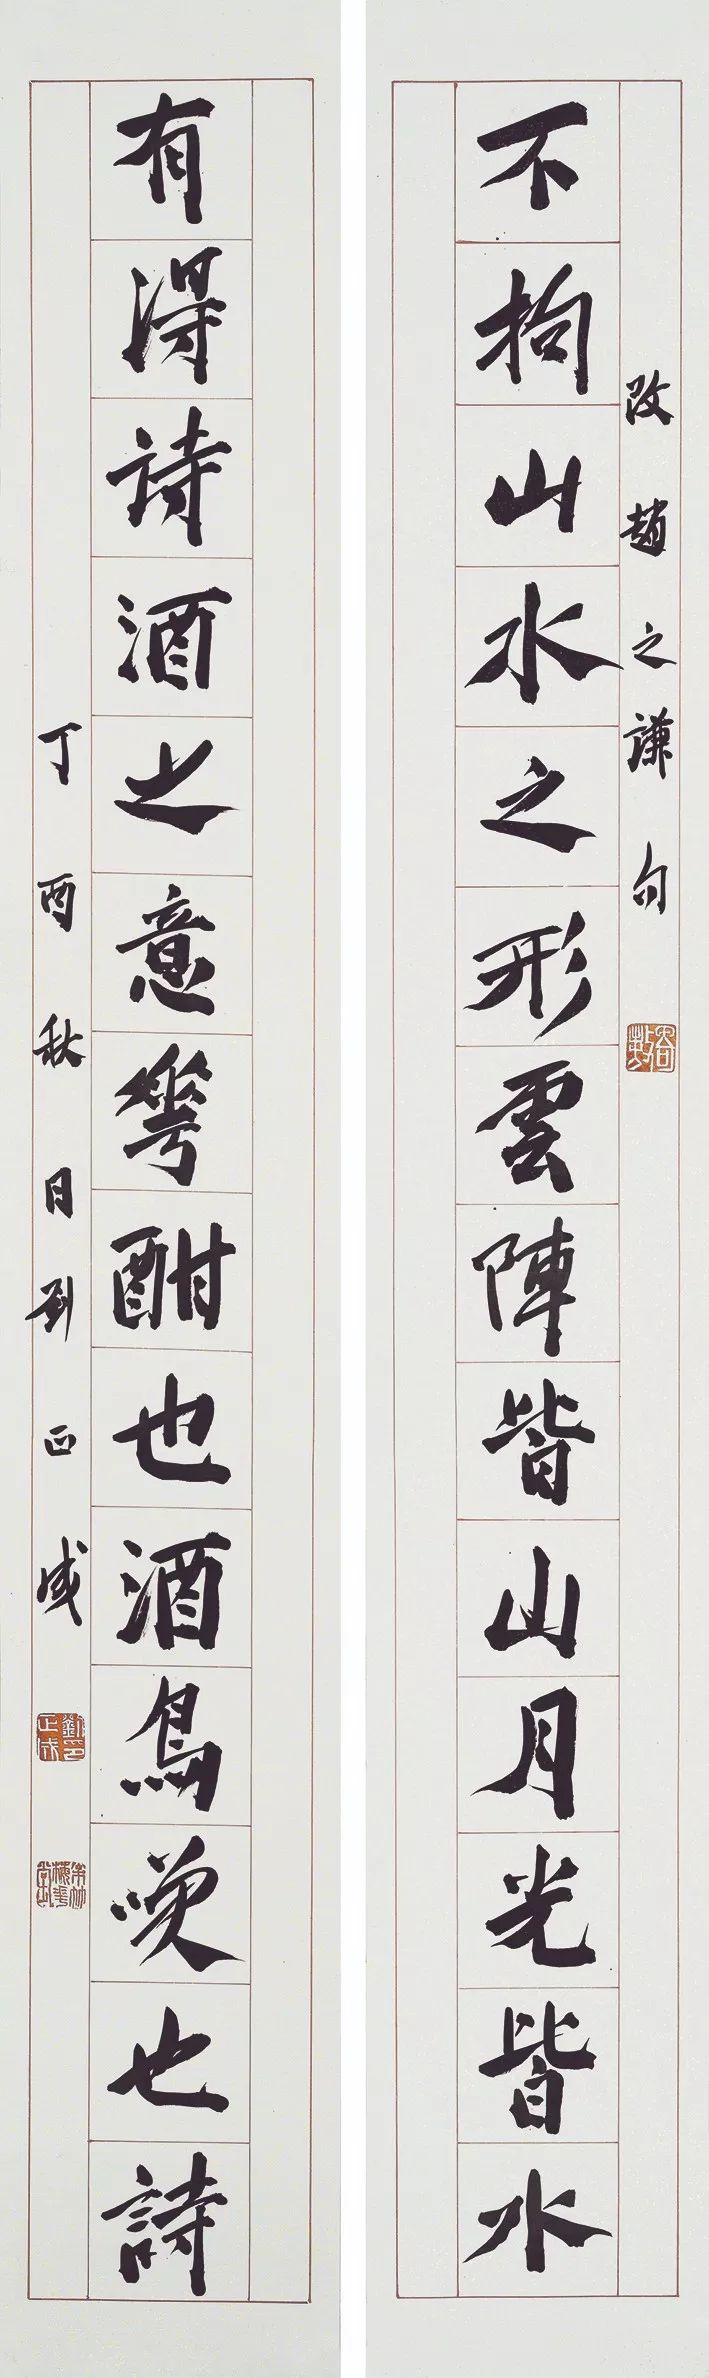 不拘山水之形雲陣皆山月光皆水
改趙之謙句
有得詩酒之意華酣也酒鳥咲也詩
丁酉秋日劉正成